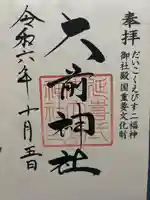 奉拝
だいこくえびす二福神
御社殿国重要文化財
大前神社
令和六年十月五日